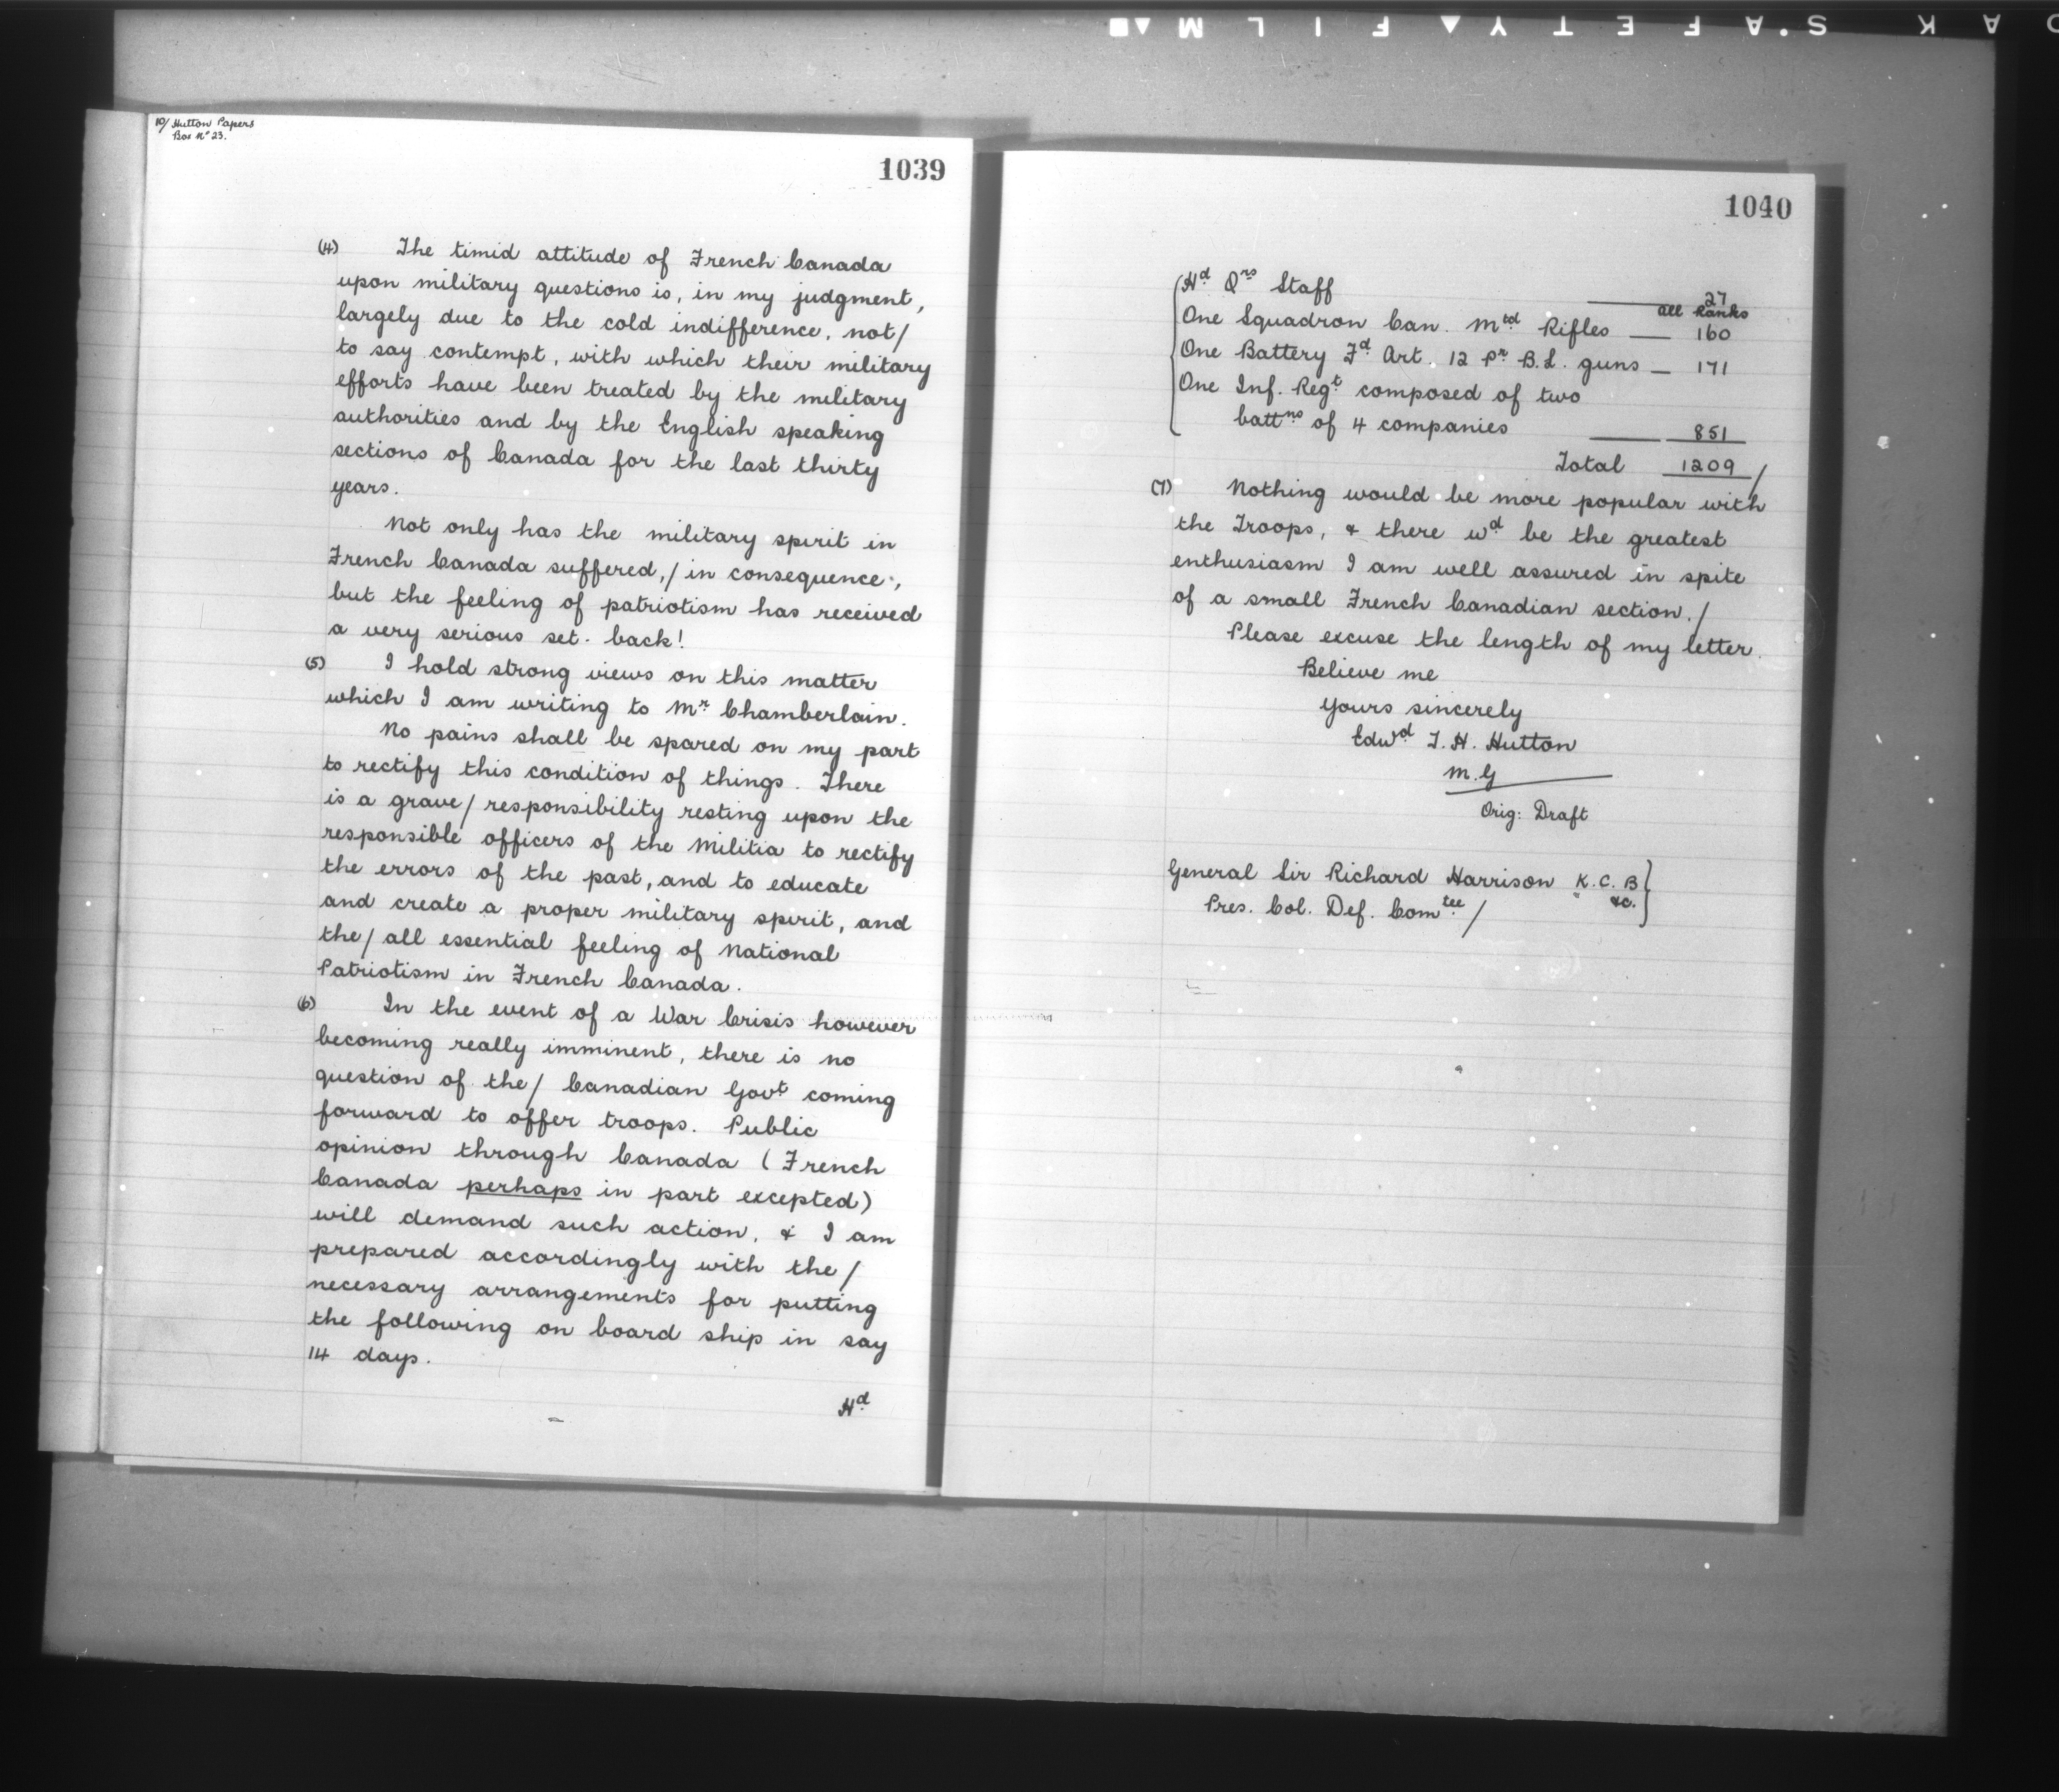 KODAK S.A F E T Y ▲ F I L M
10/ Hutton Papers
Box Nº 23.
1039
(4) The timid attitude of French Canada
upon military questions is, in my judgment,
largely due to the cold indifference, not/
to say contempt, with which their military
efforts have been treated by the military
authorities and by the English speaking
sections of Canada for the last thirty
years.
Not only has the military spirit in
French Canada suffered,/ in consequence,
but the feeling of patriotism has received
a very serious set-back!
(5) I hold strong views on this matter
which I am writing to Mr Chamberlain.
No pains shall be spared on my part
to rectify this condition of things. There
is a grave/ responsibility resting upon the
responsible officers of the Militia to rectify
the errors of the past, and to educate
and create a proper military spirit, and
the/ all essential feeling of National
Patriotism in French Canada.
(6) In the event of a War Crisis however
becoming really imminent, there is no
question of the/ Canadian Govt coming
forward to offer troops. Public
opinion through Canada (French
Canada perhaps in part excepted)
will demand such action, & I am
prepared accordingly with the/
necessary arrangements for putting
the following on board ship in say
14 days.
Hd
1040
Hd Qrs Staff —— 27
all Ranks
One Squadron Can. Mtd Rifles — 160
One Battery Fd Art. 12 Pr B.L. guns — 171
One Inf. Regt composed of two
battns of 4 companies —— 851
Total 1209/
(7) Nothing would be more popular with
the Troops, & there wd be the greatest
enthusiasm I am well assured in spite
of a small French Canadian section./
Please excuse the length of my letter.
Believe me
Yours sincerely
Edwd T. H. Hutton
M.G
Orig: Draft
General Sir Richard Harrison K.C.B
&c.
Pres. Col. Def. Comtee/